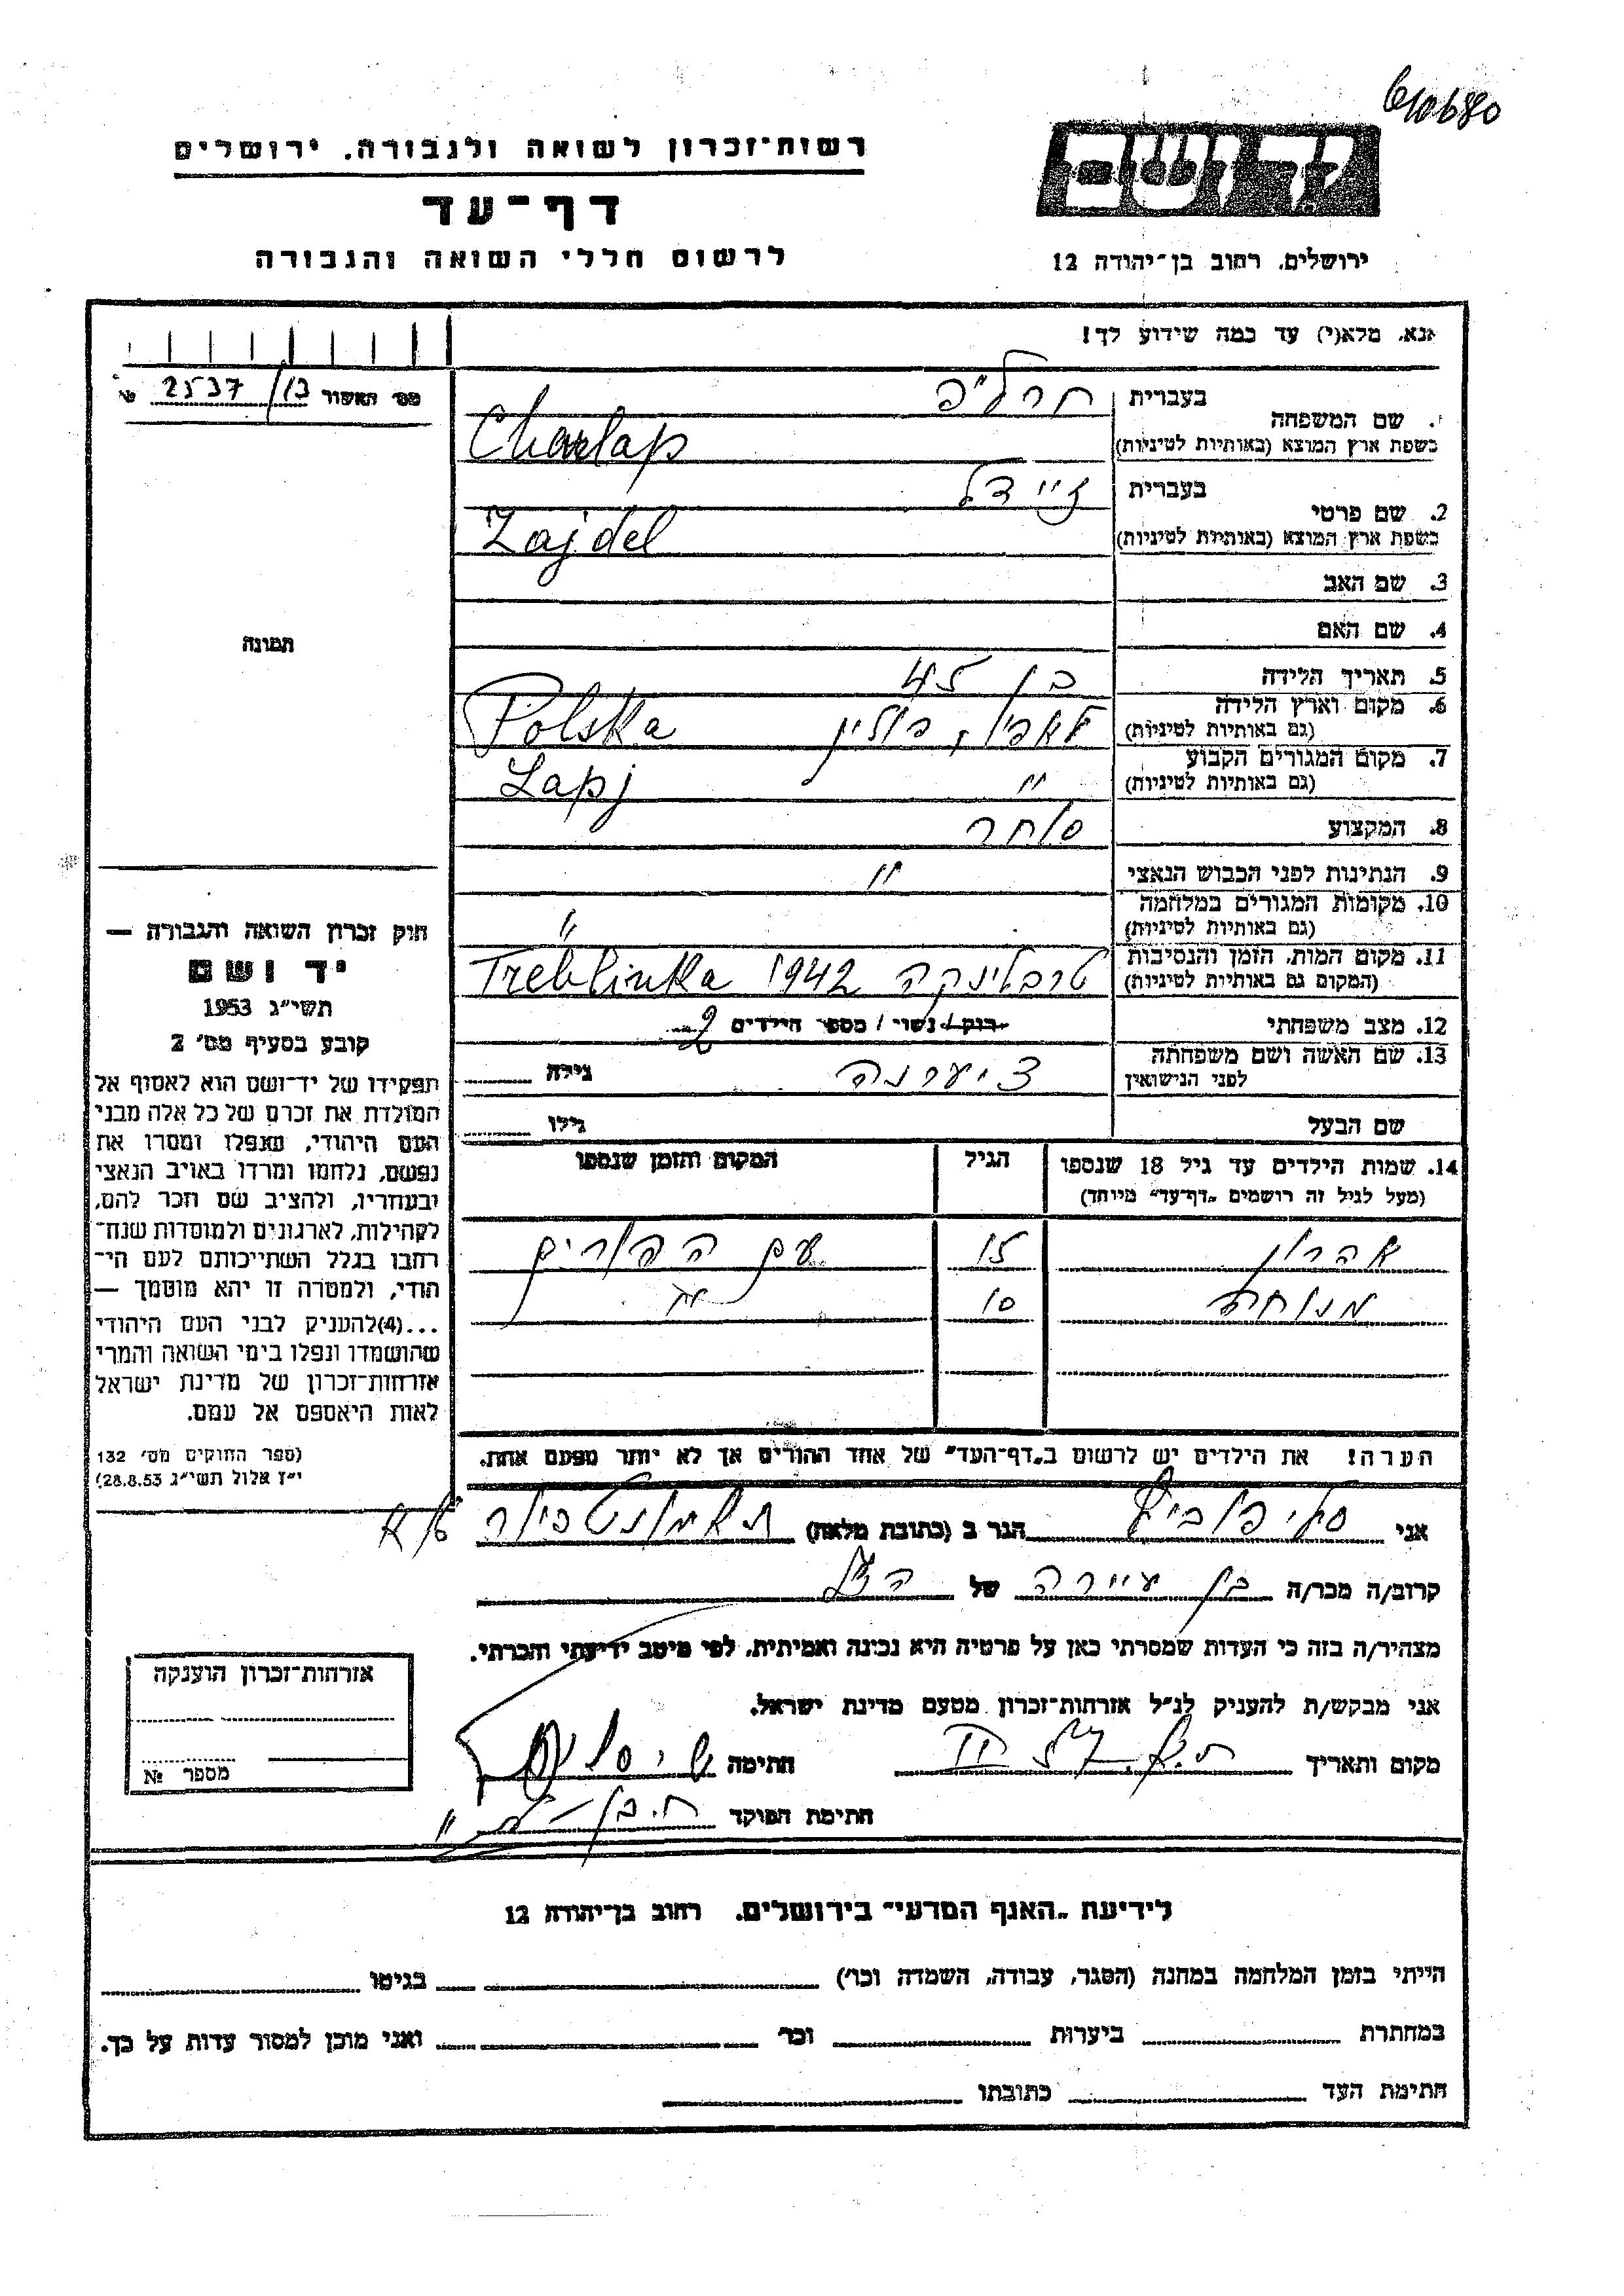 610680
רשות־זכרון לשואה ולגבורה. ירושלים
דף־עד
לרשום חללי השואה והגבורה
יד ושם
ירושלים. רחוב בן־יהודה 12
נא. מלא(י) עד כמה שידוע לך!
מס׳ האשור 13/2537 №
1. שם המשפחה
בעברית חרל״פ
בשפת ארץ המוצא (באותיות לטיניות) Charlap
2. שם פרטי
בעברית זיידל
בשפת ארץ המוצא (באותיות לטיניות) Zajdel
3. שם האב
4. שם האם
5. תאריך הלידה בן 45
6. מקום וארץ הלידה
(גם באותיות לטיניות) פולין Polska
7. מקום המגורים הקבוע
(גם באותיות לטיניות) " Lapj
8. המקצוע סוחר
9. הנתינות לפני הכבוש הנאצי "
10. מקומות המגורים במלחמה
(גם באותיות לטיניות) "
11. מקום המות, הזמן והנסיבות
(המקום גם באותיות לטיניות) טרבלינקה 1942 Treblinka
12. מצב משפחתי רווק / נשוי / מספר הילדים 2
13. שם האשה ושם משפחתה
לפני הנישואין גילה
שם הבעל גילו
14. שמות הילדים עד גיל 18 שנספו הגיל המקום והזמן שנספו
(מעל לגיל זה רושמים „דף־עד״ מיוחד)
אהרון 15 עם ההורים
מנוחה 10 "
הערה! את הילדים יש לרשום ב„דף־העד״ של אחד ההורים אך לא יותר מפעם אחת.
תמונה
חוק זכרון השואה והגבורה —
יד ושם
תשי״ג 1953
קובע בסעיף מס׳ 2
תפקידו של יד־ושם הוא לאסוף אל
המולדת את זכרם של כל אלה מבני
העם היהודי, שנפלו ומסרו את
נפשם, נלחמו ומרדו באויב הנאצי
ובעוזריו, ולהציב שם וזכר להם,
לקהילות, לארגונים ולמוסדות שנח־
רחבו בגלל השתייכותם לעם הי־
הודי, ולמטרה זו יהא מוסמך —
...(4)להעניק לבני העם היהודי
שהושמדו ונפלו בימי השואה והמרי
אזרחות־זכרון של מדינת ישראל
לאות היאספם אל עמם.
(ספר החוקים מס׳ 132
י״ז אלול תשי״ג 28.8.53)
אני הגר ב (כתובת מלאה)
קרוב/ה מכר/ה בן עיירה של הנ״ל
מצהיר/ה בזה כי העדות שמסרתי כאן על פרטיה היא נכונה ואמיתית, לפי מיטב ידיעתי והכרתי.
אני מבקש/ת להעניק לנ״ל אזרחות־זכרון מטעם מדינת ישראל.
מקום ותאריך חתימה
חתימת הפוקד
אזרחות־זכרון הוענקה
מספר №
לידיעת „האגף המדעי״ בירושלים. רחוב בן־יהודה 12
הייתי בזמן המלחמה במחנה (הסגר, עבודה, השמדה וכו׳) בגיטו
במחתרת ביערות וכו׳ ואני מוכן למסור עדות על כך.
חתימת העד כתובתו